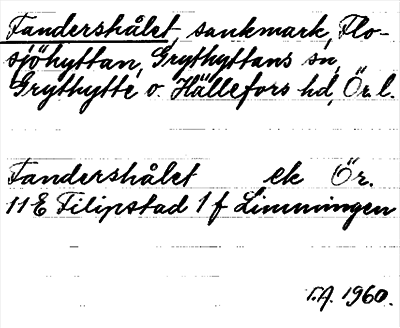 Fandershålet, sankmark, Flo-
sjöhyttan, Grythyttans sn,
Grythytte o. Hällefors hd, Ör. l.
Fandershålet ek Ör.
11E Filipstad 1 f Limmingen
T.A. 1960.